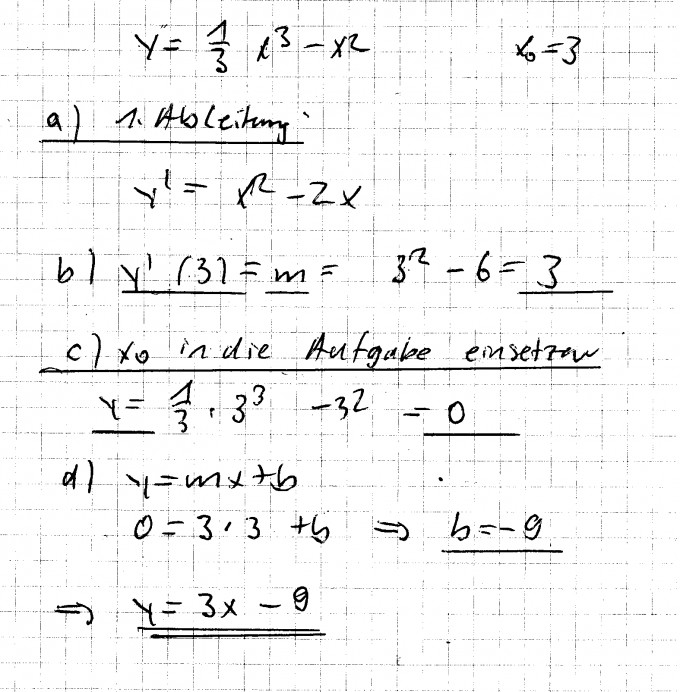 y = 1/3 x³ - x²    x₀ = 3
a) 1. Ableitung
y' = x² - 2x
b) y' (3) = m = 3² - 6 = 3
c) x₀ in die Aufgabe einsetzen
y = 1/3 · 3³ - 3² = 0
d) y = mx + b
0 = 3 · 3 + b ⇒ b = -9
⇒ y = 3x - 9